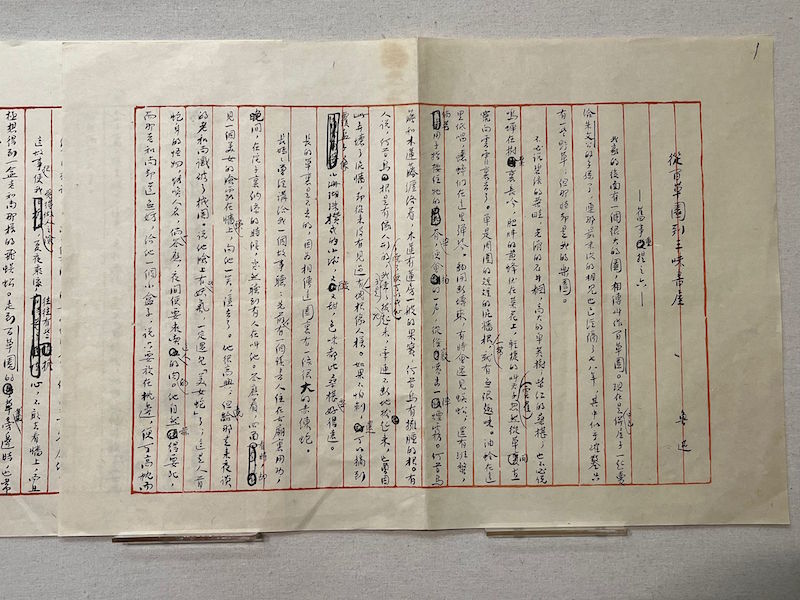 1
從百草園到三味書屋
——舊事重提之六——
魯迅
我家的後面有一個很大的園,相傳叫作百草園。現在是早已并屋子一起賣
給朱文公的子孫了,連那最末次的相見也已經隔了七八年,其中似乎確鑿只
有一些野草;但那時却是我的樂園。
不必說碧綠的菜畦,光滑的石井欄,高大的皂莢樹,紫紅的桑椹;也不必說
鳴蟬在樹葉裏長吟,肥胖的黃蜂伏在菜花上,輕捷的叫天子(雲雀)忽然從草間直
竄向雲霄裏去了。單是周圍的短短的泥牆根一帶,就有無限趣味。油蛉在這
里低唱,蟋蟀們在這里彈琴。翻開斷磚來,有時會遇見蜈蚣;還有斑蝥,
倘若用手指按住牠的脊梁,便會拍的一聲,從後竅噴出一陣煙霧。何首烏
藤和木蓮藤纏絡着,木蓮有蓮房一般的果實,何首烏有擁腫的根。有
人說,何首烏根是有像人形的,吃了便可以成仙,我于是常常拔牠起來,牽連不斷地拔起來,也曾因
此弄壞了泥牆,却從來沒有見過有一塊根像人樣。如果不怕刺,還可以摘到
覆盆子,像小珊瑚珠攢成的小球,又酸又甜,色味都比桑椹要好得遠。
長的草裏是不去的,因為相傳這園裏有一條很大的赤練蛇。
長媽媽曾經講給我一個故事聽:先前,有一個讀書人住在古廟裏用功,
晚間,在院子裏納涼的時候,突然聽到有人在叫他。答應着,四面看時,却
見一個美女的臉露在牆頭上,向他一笑,隱去了。他很高興;但竟給那走來夜談
的老和尚識破了機關。說他臉上有些妖氣,一定遇見「美女蛇」了;這是人首
蛇身的怪物,能喚人名,倘一答應,夜間便要來吃這人的肉的。他自然嚇得要死,
而那老和尚却道無妨,給他一個小盒子,說只要放在枕邊,便可高枕而
這故事使我覺得做人之險,夏夜乘涼,往往有些擔心,不敢去看牆上,而且
極想得到一盒老和尚那樣的飛蜈蚣。走到百草園的草叢旁邊時,也常